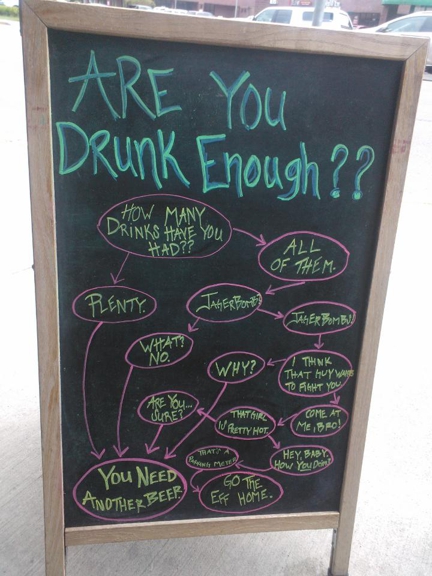 ARE YOU
DRUNK ENOUGH??
HOW MANY
DRINKS HAVE YOU
HAD??
ALL
OF THEM.
PLENTY.
JAGERBOMBS?
JAGERBOMBS!
WHAT?
NO.
WHY?
I THINK
THAT GUY WANTS
TO FIGHT YOU
ARE YOU...
SURE?
THAT GIRL
IS PRETTY HOT.
COME AT
ME, BRO!
THAT'S A
PARKING METER
HEY, BABY.
HOW YOU DOIN?
YOU NEED
ANOTHER BEER
GO THE
EFF HOME.